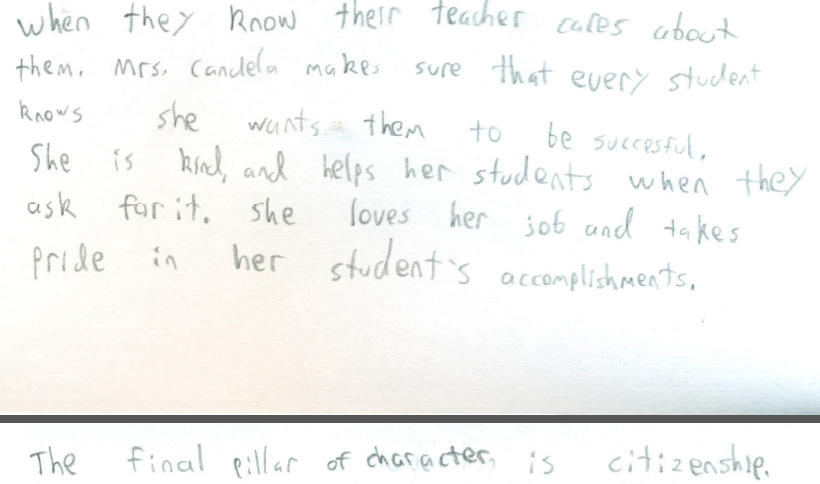 when they know their teacher cares about
them. Mrs. Candela makes sure that every student
knows she wants them to be succesful.
She is kind, and helps her students when they
ask for it. she loves her job and takes
pride in her student's accomplishments.
The final pillar of character, is citizenship.